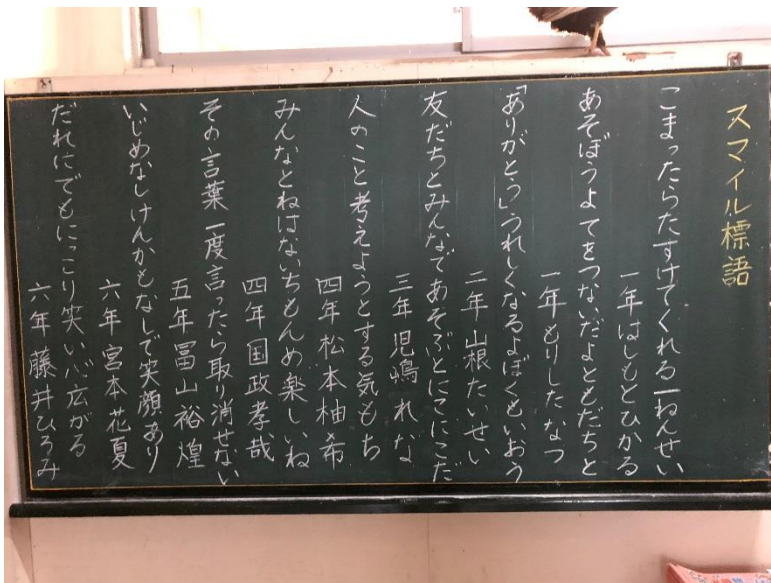 スマイル標語
こまったらたすけてくれる一ねんせい
一年はしもとひかる
あそぼうよてをつないだよともだちと
一年もりしたなつ
「ありがとう」うれしくなるよぼくもいおう
二年山根たいせい
友だちとみんなであそぶとにこにこだ
三年児嶋れな
人のこと考えようとする気もち
四年松本柚希
みんなとねはないちもんめ楽しいね
四年国政孝哉
その言葉一度言ったら取り消せない
五年冨山裕煌
いじめなしけんかもなしで笑顔あり
六年宮本花夏
だれにでもにっこり笑い心広がる
六年藤井ひろみ